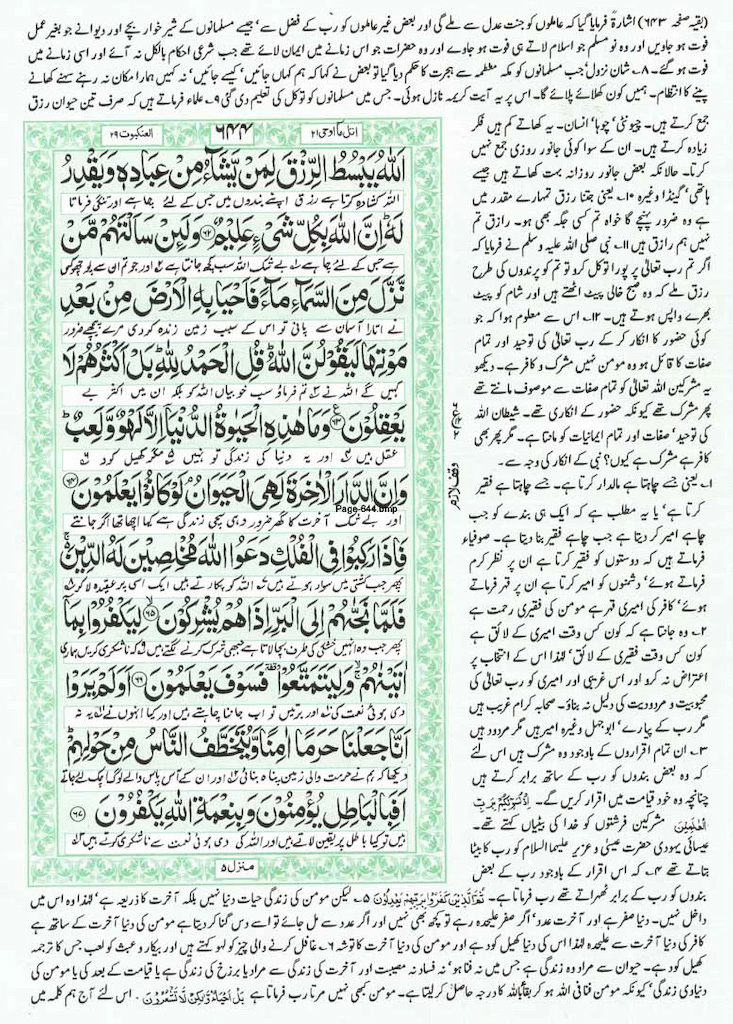 (بقیہ صفحہ ۶۴۳) اشارۃً فرمایا گیا کہ عاملوں کو جنت عدل سے ملے گی اور بعض غیر عاملوں کو رب کے فضل سے' جیسے مسلمانوں کے شیر خوار بچے اور دیوانے جو بغیر عمل
فوت ہو جاویں اور وہ نو مسلم جو اسلام لاتے ہی فوت ہو جاوے اور وہ حضرات جو اس زمانے میں ایمان لائے تھے جب شرعی احکام بالکل نہ آئے اور اسی زمانے میں
فوت ہو گئے۔ ۸۔ شان نزول' جب مسلمانوں کو مکہ معظمہ سے ہجرت کا حکم دیا گیا تو بعض نے کہا کہ ہم کہاں جائیں' کیسے جائیں' نہ کہیں ہمارا مکان نہ رہنے سہنے کھانے
پینے کا انتظام۔ ہمیں کون کھلائے پلائے گا۔ اس پر یہ آیت کریمہ نازل ہوئی۔ جس میں مسلمانوں کو توکل کی تعلیم دی گئی ۹۔ علماء فرماتے ہیں کہ صرف تین حیوان رزق
جمع کرتے ہیں۔ چیونٹی' چوہا' انسان۔ یہ کھاتے کم ہیں فکر
زیادہ کرتے ہیں۔ ان کے سوا کوئی جانور روزی جمع نہیں
کرتا۔ حالانکہ بعض جانور روزانہ بہت کھاتے ہیں جیسے
ہاتھی' گینڈا وغیرہ ۱۰۔ یعنی جتنا رزق تمہارے مقدر میں
ہے وہ ضرور پہنچے گا خواہ تم کسی جگہ بھی ہو۔ رازق تم
نہیں ہم رازق ہیں ۱۱۔ نبی صلی اللہ علیہ وسلم نے فرمایا کہ
اگر تم رب تعالیٰ پر پورا توکل کرو تو تم کو پرندوں کی طرح
رزق ملے کہ وہ صبح خالی پیٹ اٹھتے ہیں اور شام کو پیٹ
بھرے واپس ہوتے ہیں۔ ۱۲۔ اس سے معلوم ہوا کہ جو
کوئی حضور کا انکار کر کے رب تعالیٰ کی توحید اور تمام
صفات کا قائل ہو وہ مومن نہیں مشرک و کافر ہے۔ دیکھو
یہ مشرکین اللہ تعالیٰ کو تمام صفات سے موصوف مانتے تھے
پھر مشرک تھے کیونکہ حضور کے انکاری تھے۔ شیطان اللہ
کی توحید' صفات اور تمام ایمانیات کو مانتا ہے۔ مگر پھر بھی
کافر ہے مشرک ہے کیوں؟ نبی کے انکار کی وجہ سے۔
۱۔ یعنی جسے چاہتا ہے مالدار کرتا ہے۔ جسے چاہتا ہے فقیر
کرتا ہے' یا یہ مطلب ہے کہ ایک ہی بندے کو جب
چاہے امیر کر دیتا ہے جب چاہے فقیر بنا دیتا ہے۔ صوفیاء
فرماتے ہیں کہ دوستوں کو فقیر کرتا ہے ان پر نظر کرم
فرماتے ہوئے' دشمنوں کو امیر کرتا ہے ان پر قہر فرماتے
ہوئے' کافر کی امیری قہر ہے مومن کی فقیری رحمت ہے
۲۔ وہ جانتا ہے کہ کون کس وقت امیری کے لائق ہے
کون کس وقت فقیری کے لائق' لہٰذا اس کے انتخاب پر
اعتراض نہ کرو اور اس غریبی اور امیری کو رب تعالیٰ کی
محبوبیت و مردودیت کی دلیل نہ بناؤ۔ صحابہ کرام غریب ہیں
مگر رب کے پیارے' ابوجہل وغیرہ امیر ہیں مگر مردود ہیں
۳۔ ان تمام اقراروں کے باوجود وہ مشرک ہیں اس لئے
کہ وہ بعض بندوں کو رب کے ساتھ برابر کرتے ہیں
چنانچہ وہ خود قیامت میں اقرار کریں گے۔ اِذْ نُسَوِّیْكُمْ بِرَبِّ
الْعٰلَمِیْنَ مشرکین فرشتوں کو خدا کی بیٹیاں کہتے تھے۔
عیسائی یہودی حضرت عیسیٰ و عزیر علیہما السلام کو رب کا بیٹا
بتاتے تھے ۴۔ کہ اس اقرار کے باوجود رب کے بعض
العنکبوت ۲۹
۶۴۴
اتل ما اوحی ۲۱
اَللّٰهُ یَبْسُطُ الرِّزْقَ لِمَنْ یَّشَآءُ مِنْ عِبَادِهٖ وَ یَقْدِرُ
اللہ کشادہ کرتا ہے رزق اپنے بندوں میں جس کے لئے چاہے اور تنگی فرماتا
لَهٗ اِنَّ اللّٰهَ بِكُلِّ شَیْءٍ عَلِیْمٌ ۶۲ وَ لَىِٕنْ سَاَلْتَهُمْ مَّنْ
ہے جس کے لئے چاہے بے شک اللہ سب کچھ جانتا ہے اور جو تم ان سے پوچھو کس
نَّزَّلَ مِنَ السَّمَآءِ مَآءً فَاَحْیَا بِهِ الْاَرْضَ مِنْۢ بَعْدِ
نے اتارا آسمان سے پانی تو اس کے سبب زمین زندہ کر دی مرے پیچھے ضرور
مَوْتِهَا لَیَقُوْلُنَّ اللّٰهُ قُلِ الْحَمْدُ لِلّٰهِ بَلْ اَكْثَرُهُمْ لَا
کہیں گے اللہ نے تم فرماؤ سب خوبیاں اللہ کو بلکہ ان میں اکثر بے
یَعْقِلُوْنَ ۶۳ وَ مَا هٰذِهِ الْحَیٰوةُ الدُّنْیَاۤ اِلَّا لَهْوٌ وَّ لَعِبٌ
عقل ہیں اور یہ دنیا کی زندگی تو نہیں مگر کھیل کود
وَ اِنَّ الدَّارَ الْاٰخِرَةَ لَهِیَ الْحَیَوَانُ لَوْ كَانُوْا یَعْلَمُوْنَ ۶۴
اور بے شک آخرت کا گھر ضرور وہی سچی زندگی ہے کیا اچھا تھا اگر جانتے
Page-644.bmp
فَاِذَا رَكِبُوْا فِی الْفُلْكِ دَعَوُا اللّٰهَ مُخْلِصِیْنَ لَهُ الدِّیْنَ
پھر جب کشتی میں سوار ہوتے ہیں اللہ کو پکارتے ہیں ایک اسی پر عقیدہ لا کر
فَلَمَّا نَجّٰىهُمْ اِلَى الْبَرِّ اِذَا هُمْ یُشْرِكُوْنَ ۶۵ لِیَكْفُرُوْا بِمَاۤ
پھر جب وہ انہیں خشکی کی طرف بچا لاتا ہے جبھی شرک کرنے لگتے ہیں کہ ناشکری کریں ہماری
اٰتَیْنٰهُمْ وَ لِیَتَمَتَّعُوْا فَسَوْفَ یَعْلَمُوْنَ ۶۶ اَوَ لَمْ یَرَوْا
دی ہوئی نعمت کی اور برتیں تو اب جاننا چاہتے ہیں اور کیا انہوں نے یہ نہ
اَنَّا جَعَلْنَا حَرَمًا اٰمِنًا وَّ یُتَخَطَّفُ النَّاسُ مِنْ حَوْلِهِمْ
دیکھا کہ ہم نے حرمت والی زمین پناہ بنائی اور ان کے آس پاس والے لوگ اچک لئے جاتے
اَفَبِالْبَاطِلِ یُؤْمِنُوْنَ وَ بِنِعْمَةِ اللّٰهِ یَكْفُرُوْنَ ۶۷
ہیں تو کیا باطل پر یقین لاتے ہیں اور اللہ کی دی ہوئی نعمت سے ناشکری کرتے ہیں
منزل ۵
وقف لازم
بندوں کو رب کے برابر ٹھہراتے تھے رب فرماتا ہے۔ ثُمَّ الَّذِیْنَ كَفَرُوْا بِرَبِّهِمْ یَعْدِلُوْنَ ۵۔ لیکن مومن کی زندگی حیات دنیا نہیں بلکہ آخرت کا ذریعہ ہے' لہٰذا وہ اس میں
داخل نہیں۔ دنیا صفر ہے اور آخرت عدد' اگر صفر علیحدہ رہے تو کچھ بھی نہیں اور اگر عدد سے مل جائے تو اسے دس گنا کر دیتا ہے مومن کی دنیا آخرت کے ساتھ ہے
کافر کی دنیا آخرت سے علیحدہ لہٰذا اس کی دنیا کھیل کود ہے اور مومن کی دنیا آخرت کا توشہ ۶۔ غافل کرنے والی چیز کو لہو کہتے ہیں اور بیکار و عبث کو لعب جس کا ترجمہ
کھیل کود ہے۔ حیوان سے مراد وہ زندگی ہے جس میں نہ فنا ہو' نہ فساد نہ مصیبت اور آخرت کی زندگی سے مراد یا برزخ کی زندگی ہے یا قیامت کے بعد کی یا مومن کی
دنیاوی زندگی' کیونکہ مومن فنا فی اللہ ہو کر بقا باللہ کا درجہ حاصل کر لیتا ہے۔ مومن کبھی نہیں مرتا رب فرماتا ہے بَلْ اَحْیَآءٌ وَّ لٰكِنْ لَّا تَشْعُرُوْنَ۔ اس لئے آج ہم کلمہ میں